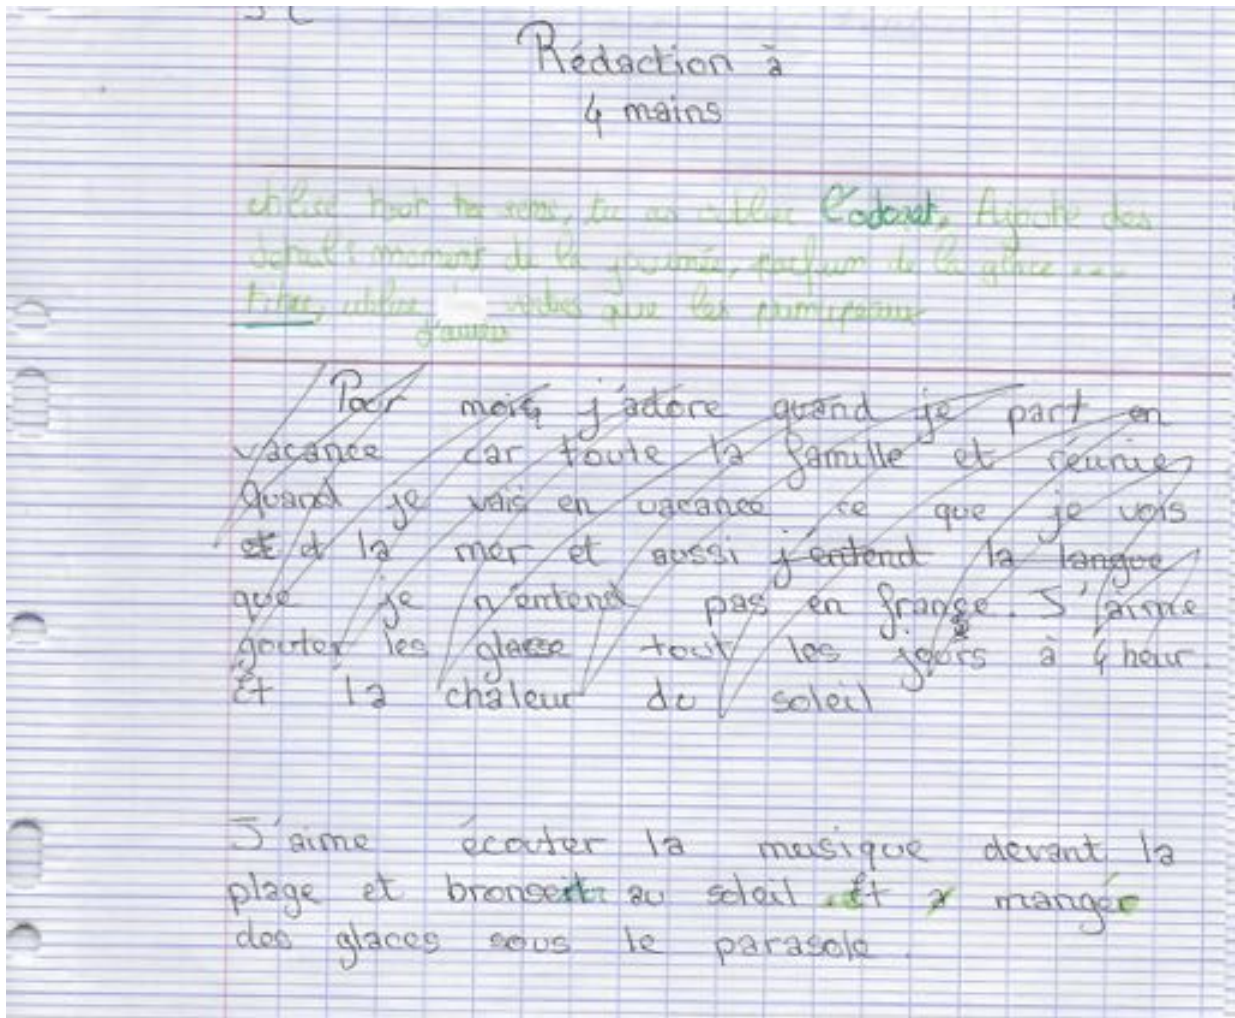 Rédaction à
4 mains
utilise tout tes sens, tu as oublié l'odorat, Ajoute des
détails moment de la journée, parfum de la glace ...
titre, utilise verbes que les principaux
d'autres
Pour moi, j'adore quand je part en
vacance car toute la famille et réunie
Quand je vais en vacance ce que je vois
et la mer et aussi j'entend la langue
que je n'entend pas en france. J'aime
gouter les glace tout les jours à 4 heur.
Et la chaleur du soleil
J'aime écouter la musique devant la
plage et bronser au soleil. Et à manger
des glaces sous le parasole.